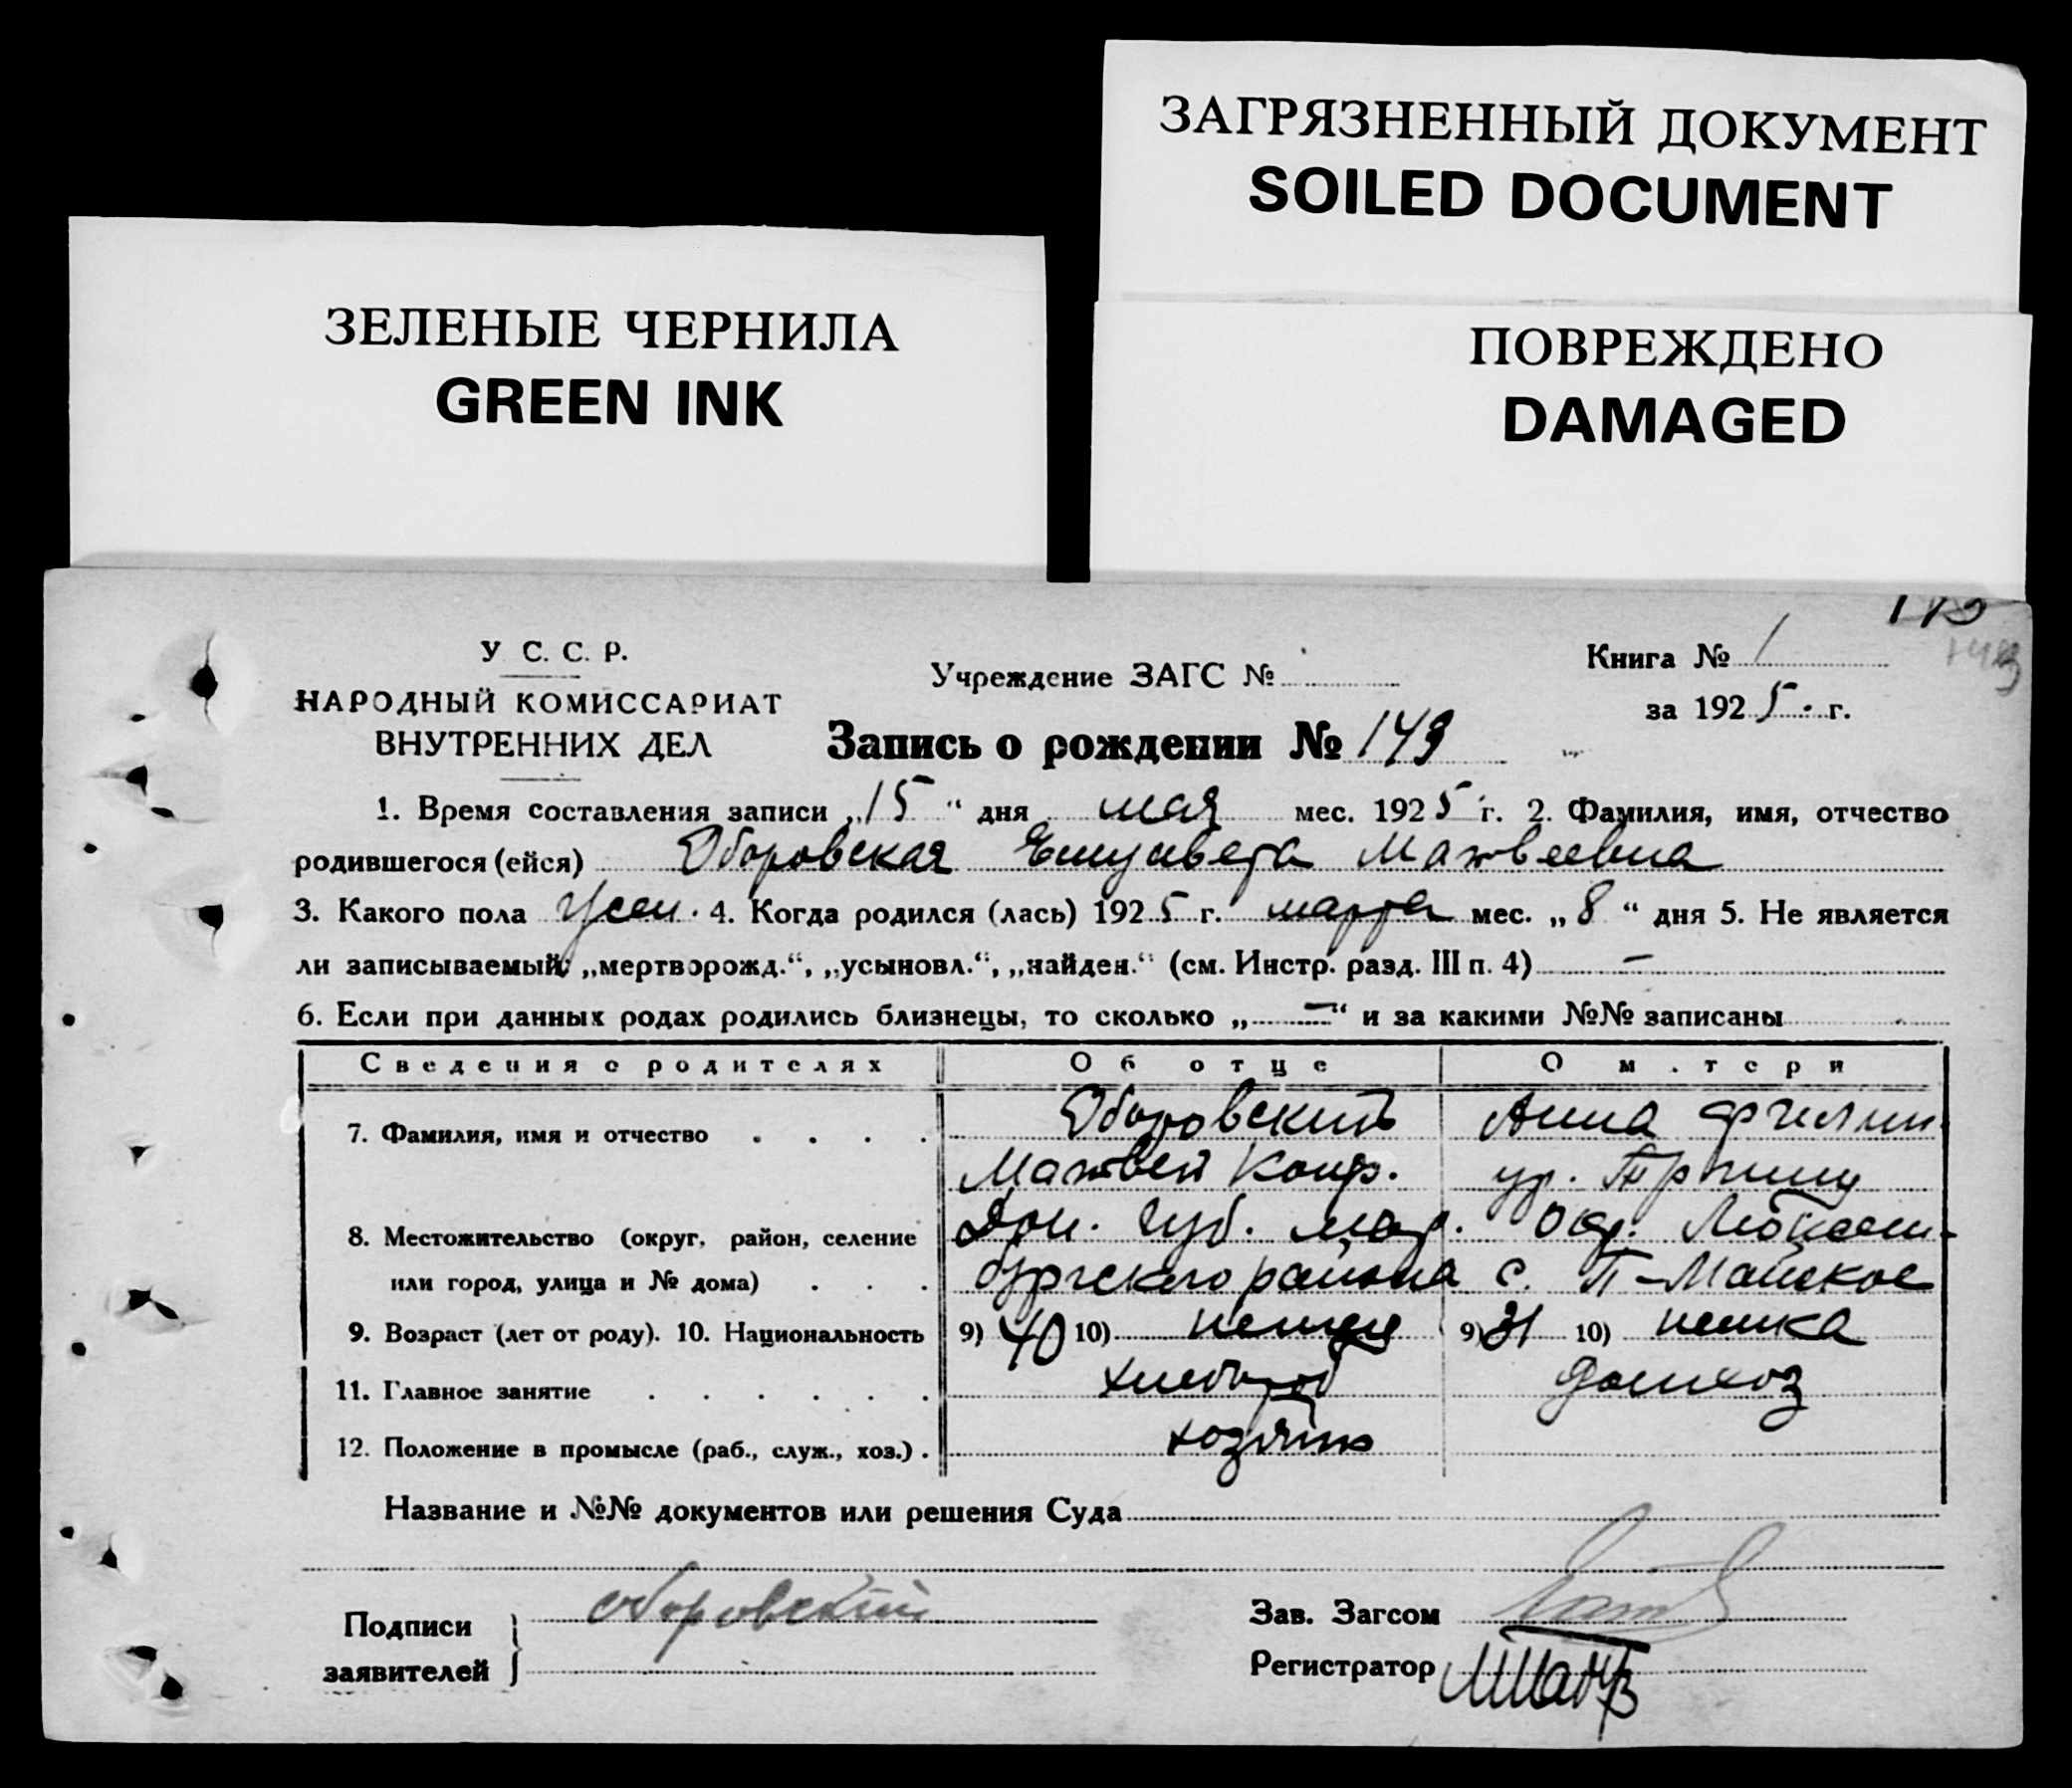 ЗАГРЯЗНЕННЫЙ ДОКУМЕНТ
SOILED DOCUMENT
ЗЕЛЕНЫЕ ЧЕРНИЛА
GREEN INK
ПОВРЕЖДЕНО
DAMAGED
У С. С. Р.
НАРОДНЫЙ КОМИССАРИАТ
ВНУТРЕННИХ ДЕЛ
Учреждение ЗАГС №
Книга № 1
за 1925 г.
Запись о рождении № 143
1. Время составления записи „15“ дня мая мес. 1925 г. 2. Фамилия, имя, отчество
родившегося (ейся) Оборовская Елизавета Матвеевна
3. Какого пола жен. 4. Когда родился (лась) 1925 г. марта мес. „8“ дня 5. Не является
ли записываемый: „мертворожд.“, „усыновл.“, „найден.“ (см. Инстр. разд. III п. 4) —
6. Если при данных родах родились близнецы, то сколько „—“ и за какими №№ записаны
Сведения о родителях Об отце О м.тери
7. Фамилия, имя и отчество Оборовский Анна Филип.
Матвей Конр. ур.
8. Местожительство (округ, район, селение Дон. губ. мар. окр. Люксем-
или город, улица и № дома) бургского района с. П-Майское
9. Возраст (лет от роду). 10. Национальность 9) 40 10) немец 9) 31 10) немка
11. Главное занятие хлебороб домхоз
12. Положение в промысле (раб., служ., хоз.) хозяин
Название и №№ документов или решения Суда
Подписи заявителей Оборовский
Зав. Загсом
Регистратор